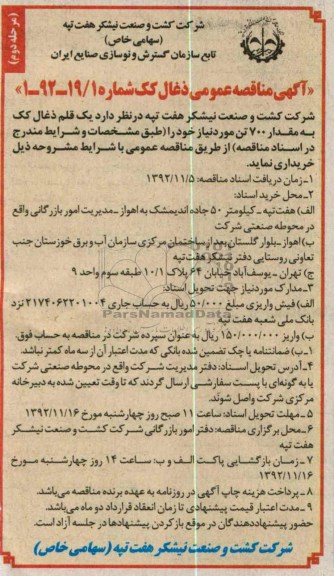 (مرحله دوم)
شرکت کشت و صنعت نیشکر هفت تپه
(سهامی خاص)
تابع سازمان گسترش و نوسازی صنایع ایران
«آگهی مناقصه عمومی ذغال کک شماره ۱۹/۱-۹۲-۱»
شرکت کشت و صنعت نیشکر هفت تپه در نظر دارد یک قلم ذغال کک
به مقدار ۷۰۰ تن مورد نیاز خود را (طبق مشخصات و شرایط مندرج
در اسناد مناقصه) از طریق مناقصه عمومی با شرایط مشروحه ذیل
خریداری نماید.
۱-زمان دریافت اسناد مناقصه: ۱۳۹۲/۱۱/۵
۲-محل خرید اسناد:
الف) هفت‌تپه - کیلومتر ۵۰ جاده اندیمشک به اهواز - مدیریت امور بازرگانی واقع
در محوطه صنعتی شرکت
ب) اهواز-بلوار گلستان بعد از ساختمان مرکزی سازمان آب و برق خوزستان جنب
تعاونی روستایی دفتر نیشکر هفت تپه
ج) تهران - یوسف‌آباد خیابان ۶۴ پلاک ۱۰/۱ طبقه سوم واحد ۹
۳-مدارک مورد نیاز جهت تحویل اسناد:
الف) فیش واریزی مبلغ ۵۰/۰۰۰ ریال به حساب جاری ۲۱۷۴۰۶۲۲۰۱۰۰۴ نزد
بانک ملی شعبه هفت تپه
ب) واریز ۱۵۰/۰۰۰/۰۰۰ ریال به عنوان سپرده شرکت در مناقصه به حساب فوق.
۱-ب) ضمانتنامه یا چک تضمین شده بانکی که مدت اعتبار آن از سه ماه کمتر نباشد.
۴-آدرس تحویل اسناد: دفتر مدیریت شرکت واقع در محوطه صنعتی شرکت
یا به گونه‌ای با پست سفارشی ارسال گردند که تا وقت تعیین شده به دبیرخانه
مرکزی شرکت واصل شوند.
۵-مهلت تحویل اسناد: ساعت ۱۱ صبح روز چهارشنبه مورخ ۱۳۹۲/۱۱/۱۶
۶-محل برگزاری مناقصه: دفتر امور بازرگانی شرکت کشت و صنعت نیشکر
هفت تپه
۷-زمان بازگشایی پاکت الف و ب: ساعت ۱۴ روز چهارشنبه مورخ
۱۳۹۲/۱۱/۱۶
۸-پرداخت هزینه چاپ آگهی در روزنامه به عهده برنده مناقصه می‌باشد.
۹-مدت اعتبار قیمت پیشنهادی تا زمان انعقاد قرارداد دو ماه می‌باشد.
حضور پیشنهاددهندگان در موقع باز کردن پیشنهادها در جلسه آزاد است.
شرکت کشت و صنعت نیشکر هفت تپه (سهامی خاص)